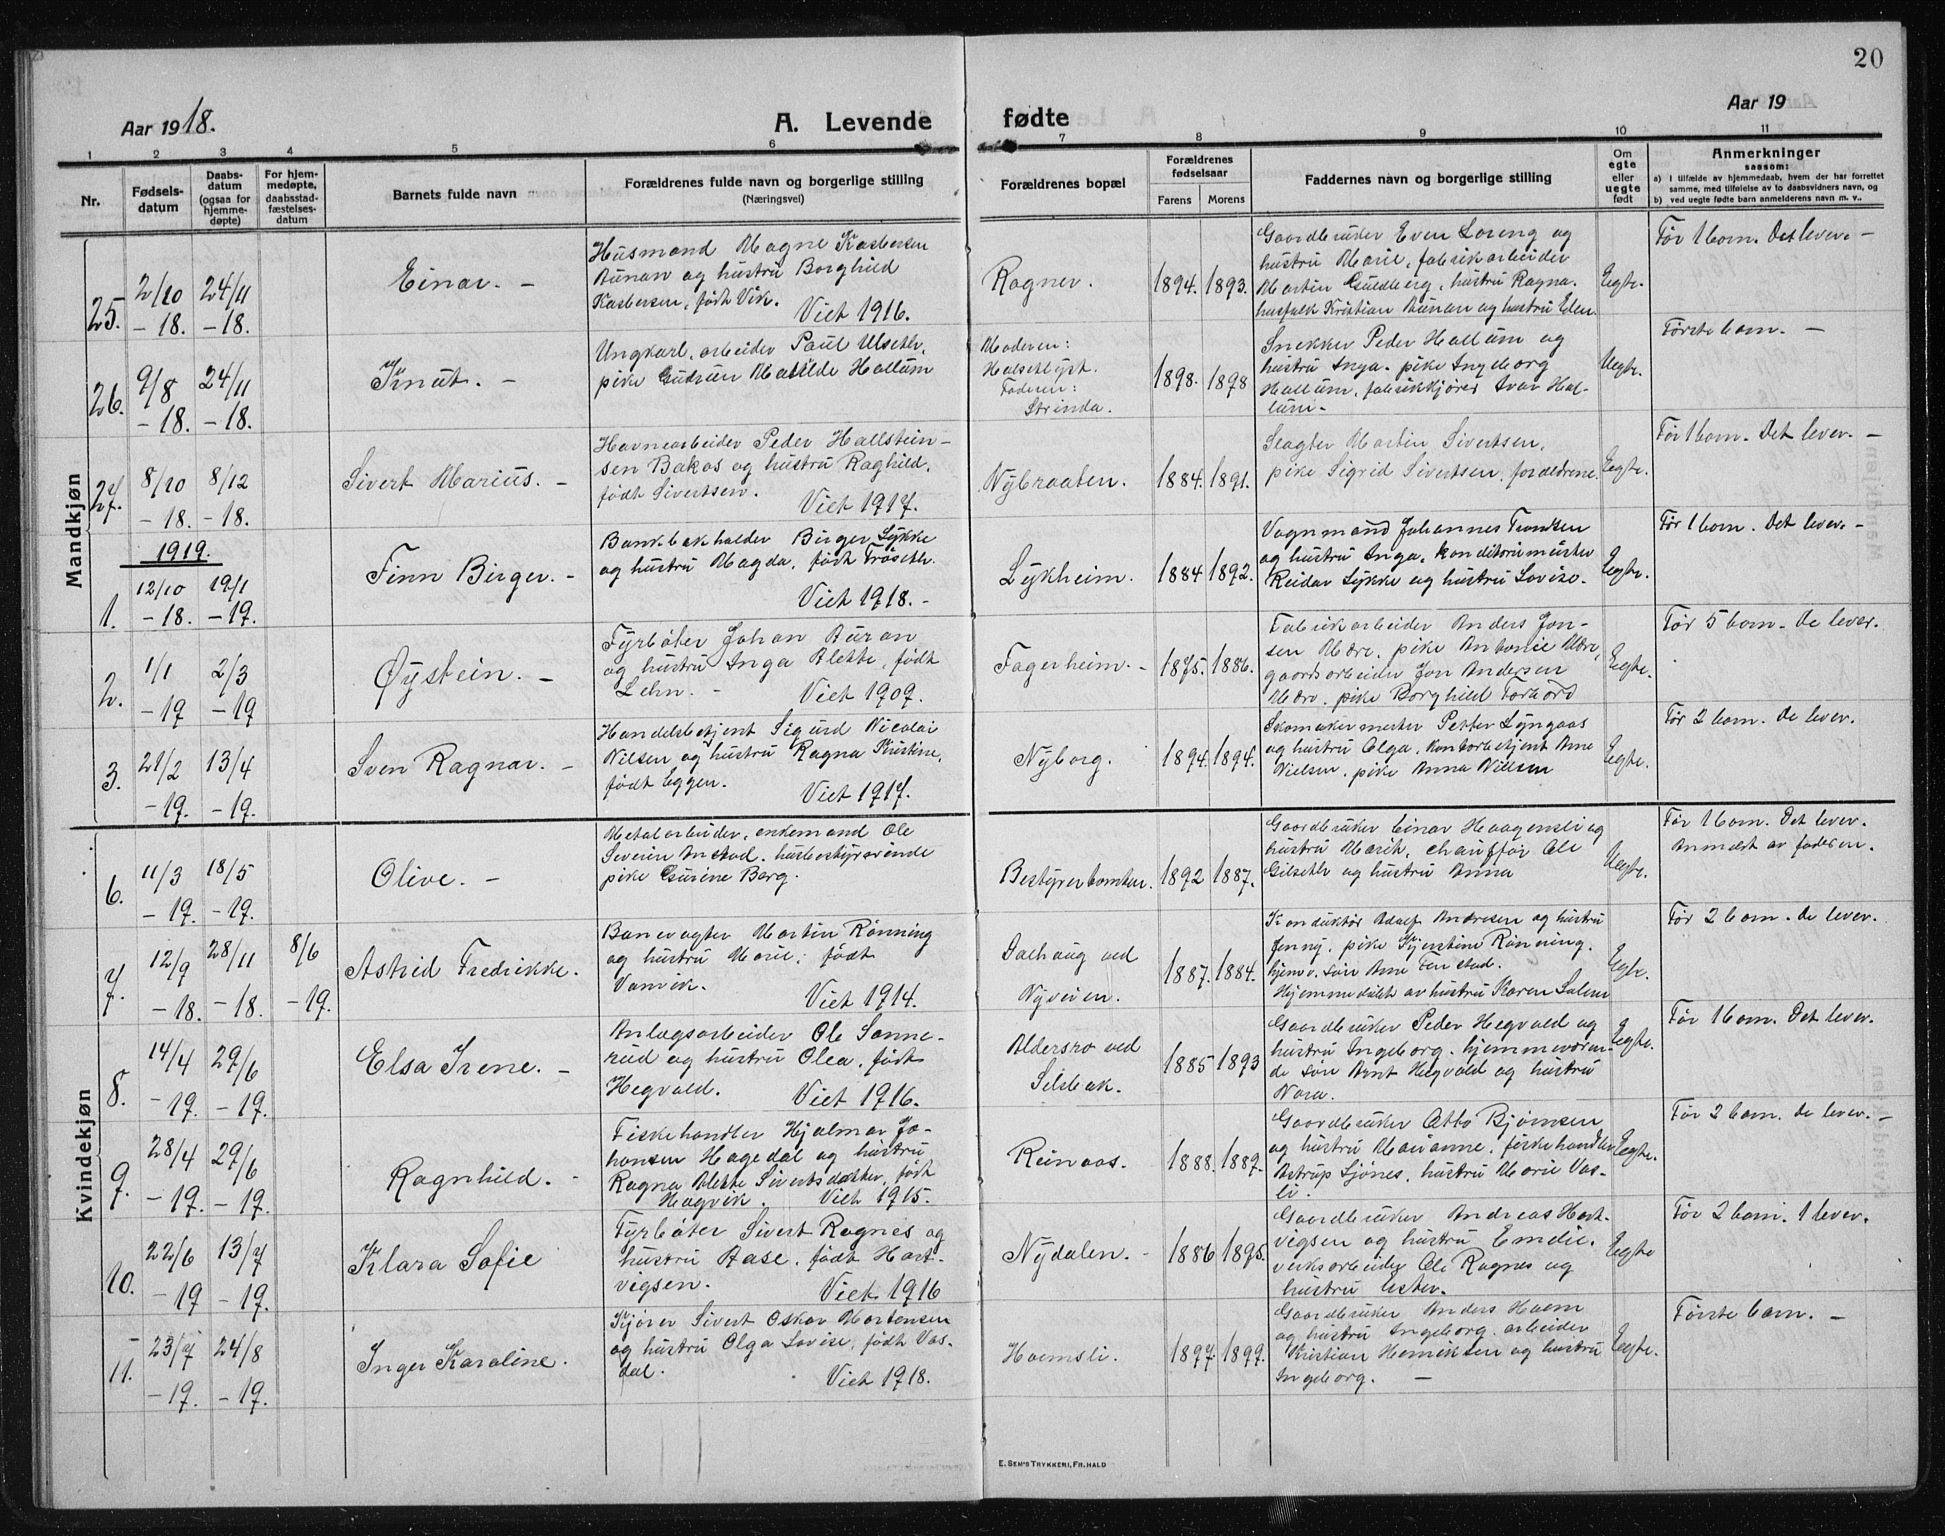 20
Aar 1918.
A. Levende
fødte
Aar 19
1 2 3 4 5 6 7 8 9 10 11
Nr.
Fødsels-
datum
Daabs-
datum
(ogsaa for
hjemme-
døpte)
For hjem-
medøpte,
daabsstad-
fæstelses-
datum
Barnets fulde navn
Forældrenes fulde navn og borgerlige stilling
(Næringsvei)
Forældrenes bopæl
Forældrenes
fødselsaar
Farens Morens
Faddernes navn og borgerlige stilling
Om
egte
eller
uegte
født
Anmerkninger
saasom:
a) I tilfælde av hjemmedaab, hvem der har forrettet
samme, med tilføielse av to daabsvidners navn, og
b) ved uegte fødte barn anmelderens navn m. v..
Mandkjøn
25. 2/10 -18. 24/11 -18.
Einar. -
Husmand Magne Kasbersen
Aunan og hustru Borghild
Kasbersen, født Vik.
Viet 1916.
Ragner.
1894. 1893.
Gaardbruker Even Loreng og
hustru Marie, fabrikarbeider
Martin Guldberg, hustru Ragna.
husfolk Kristian Aunan og hustru Elen.
Egte.
Før 1 barn. Det lever. -
26. 9/8 -18. 24/11 -18.
Knut. -
Ungkarl, arbeider Paul Ulseth,
pike Gudrun Matilde Hallum
Moderen:
Halsetlyst.
Faderen:
Strinda.
1898. 1898
Snekker Peder Hallum og
hustru Inga. pike Ingeborg
Hallum, fabrikkjører Ivar Hal-
lum. -
Uegte.
Første barn. -
27. 8/10 -18. 8/12 -18.
Sivert Marius. -
Havnearbeider Peder Hallstein-
sen Bakos og hustru Raghild,
født Sivertsen.
Viet 1917.
Nybraaten.
1884. 1891.
Slagter Martin Sivertsen,
pike Sigrid Sivertsen, forældrene.
Egte.
Før 1 barn. Det lever. -
1919.
1. 12/10 -18. 19/1 -19.
Finn Birger. -
Bankbokholder Birger Lykke
og hustru Magda, født Trøseth.
Viet 1918. -
Lykheim.
1884 1892.
Vognmand Johannes Trondsen
og hustru Inga, konditormester
Reidar Lykke og hustru Lovise.
Egte.
Før 1 barn. Det lever. -
2. 1/1 -19 2/3 -19
Øystein. -
Fyrbøter Johan Auran
og hustru Inga Alette, født
Lehn. -
Viet 1909.
Fagerheim. -
1875. 1886.
Fabrikarbeider Anders Jon-
sen Mære, pike Antonie Mære,
gaardsarbeider Jon Andersen
Mære, pike Borghild Forbord
Egte.
Før 5 barn. De lever.
3. 21/2 -19. 13/4 -19.
Sven Ragnar. -
Handelsbetjent Sigurd Nicolai
Nilsen og hustru Ragna Kristine,
født Eggen.
Viet 1917.
Nyborg.
1894. 1894.
Skomakermester Petter Lyngaas
og hustru Olga, kontorbetjent Arne
Nielsen, pike Anna Nielsen
Egte.
Før 2 barn. De lever.
Kvindekjøn
6. 11/3 -19. 18/5 -19.
Olive. -
Metalarbeider, enkemand Ole
Severin Anstad. husbestyrerinde
pike Gurine Berg.
Bestyrerbomten.
1892 1887.
Gaardbruker Einar Haagensli og
hustru Marit, chauffør Ole
Gilseth og hustru Anna
Uegte.
Før 1 barn. Det lever.
Anmeldt av faderen.
7. 12/9 -18. 28/11 -18. 8/6 -19.
Astrid Fredrikke.
Banevagter Martin Rønning
og hustru Marie, født
Vanvik.
Viet 1914.
Dalhaug ved
Nyveien.
1887. 1884.
Konduktør Adolf Andresen og hustru
Jenny, pike Kjerstine Rønning.
hjemv. søn Arne Fenstad.
Hjemmedøbt av hustru Karen Salem
Egte.
Før 2 barn. De lever.
8. 14/4 -19. 29/6 -19.
Elsa Irene. -
Anlægsarbeider Ole Sanne-
rud og hustru Olea, født
Hegvald.
Viet 1916.
Aldersro ved
Selsbak.
1885 1893
Gaardbruker Peder Hegvold og
hustru Ingeborg. hjemmeværen-
de søn Arnt Hegvold og hustru
Nora.
Egte.
Før 1 barn. Det lever.
9. 28/4 -19. 29/6 -19.
Ragnhild. -
Fiskehandler Hjalmar Jo-
hansen Hagedal og hustru
Ragna Alette Sivertsdatter, født
Hagvik. Viet 1915.
Reinaas.
1888. 1889.
Gaardbruker Otto Bjørnsen
og hustru Marianne, fiskehandler
Astrup Sjønes, hustru Marie Vas-
li.
Egte.
Før 2 barn. De lever. -
10. 22/6 -19 13/7 -19.
Klara Sofie
Fyrbøter Sivert Ragnes og
hustru Aase, født Hart-
vigsen.
Viet 1916
Nydalen. -
1886 1895.
Gaardbruker Andreas Hart-
vigsen og hustru Emelie.
verksarbeider Ole Ragnes og
hustru Ester.
Egte
Før 2 barn. 1 lever.
11. 23/7 -19. 24/8 -19.
Inger Karoline.
Kjører Sivert Oskar Mortensen
og hustru Olga Lovise, født Vas-
dal.
Viet 1918.
Hoemsli.
1897. 1899.
Gaardbruker Anders Hoem
og hustru Ingeborg. arbeider
Kristian Henriksen og hustru
Ingeborg. -
Egte.
Første barn. -
E. SEM'S TRYKKERI, FR. HALD